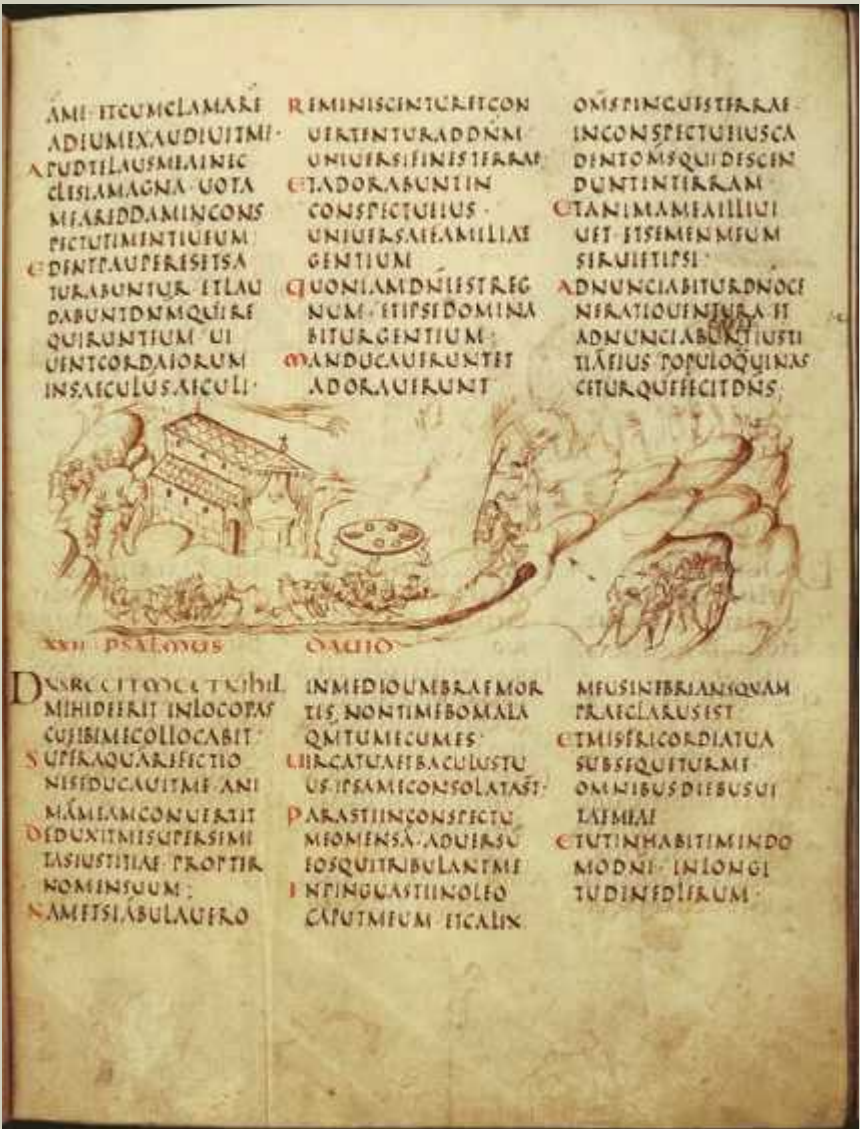 AME· ETCUMCLAMARE
ADEUMEXAUDIUITME·
APUDTELAUSMEAINEC
CLESIAMAGNA· UOTA
MEAREDDAMINCONS
PECTUTIMENTIUEUM
EDENTPAUPERESETSA
TURABUNTUR· ETLAU
DABUNTDNMQUIRE
QUIRUNTEUM UI
UENTCORDAEORUM
INSAECULUSAECULI·
REMINISCENTURETCON
UERTENTURADDNM
UNIUERSIFINESTERRAE·
ETADORABUNTIN
CONSPECTUEIUS·
UNIUERSAEFAMILIAE
GENTIUM
QUONIAMDNIESTREG
NUM· ETIPSEDOMINA
BITURGENTIUM;
MANDUCAUERUNTET
ADORAUERUNT
OMSPINGUESTERRAE·
INCONSPECTUEIUSCA
DENTOMSQUIDESCEN
DUNTINTERRAM·
ETANIMAMEAILLIUI
UET· ETSEMENMEUM
SERUIETIPSI·
ADNUNCIABITURDNOGE
NERATIOUENTURA· ET
ADNUNCIABUNTIUSTI
TIAEIUS POPULOQUINAS
CETURQUEFECITDNS;
XXII PSALMUS DAUID
DNSREGITMEETNIHIL
MIHIDEERIT INLOCOPAS
CUEIBIMECOLLOCABIT·
SUPERAQUAREFECTIO
NISEDUCAUITME· ANI
MAMEAMCONUERTIT
DEDUXITMESUPERSEMI
TASIUSTITIAE· PROPTER
NOMENSUUM;
NAMETSIABULAUERO
INMEDIOUMBRAEMOR
TIS, NONTIMEBOMALA
QMTUMECUMES·
UIRGATUAETBACULUSTU
US· IPSAMECONSOLATAST·
PARASTIINCONSPECTU
MEOMENSA· ADUERSU
EOSQUITRIBULANTME
INPINGUASTIINOLEO
CAPUTMEUM ETCALIX
MEUSINEBRIANSQUAM
PRAECLARUSEST
ETMISERICORDIATUA
SUBSEQUETURME·
OMNIBUSDIEBUSUI
TAEMEAE
ETUTINHABITEMINDO
MODNI· INLONGI
TUDINEDIERUM·